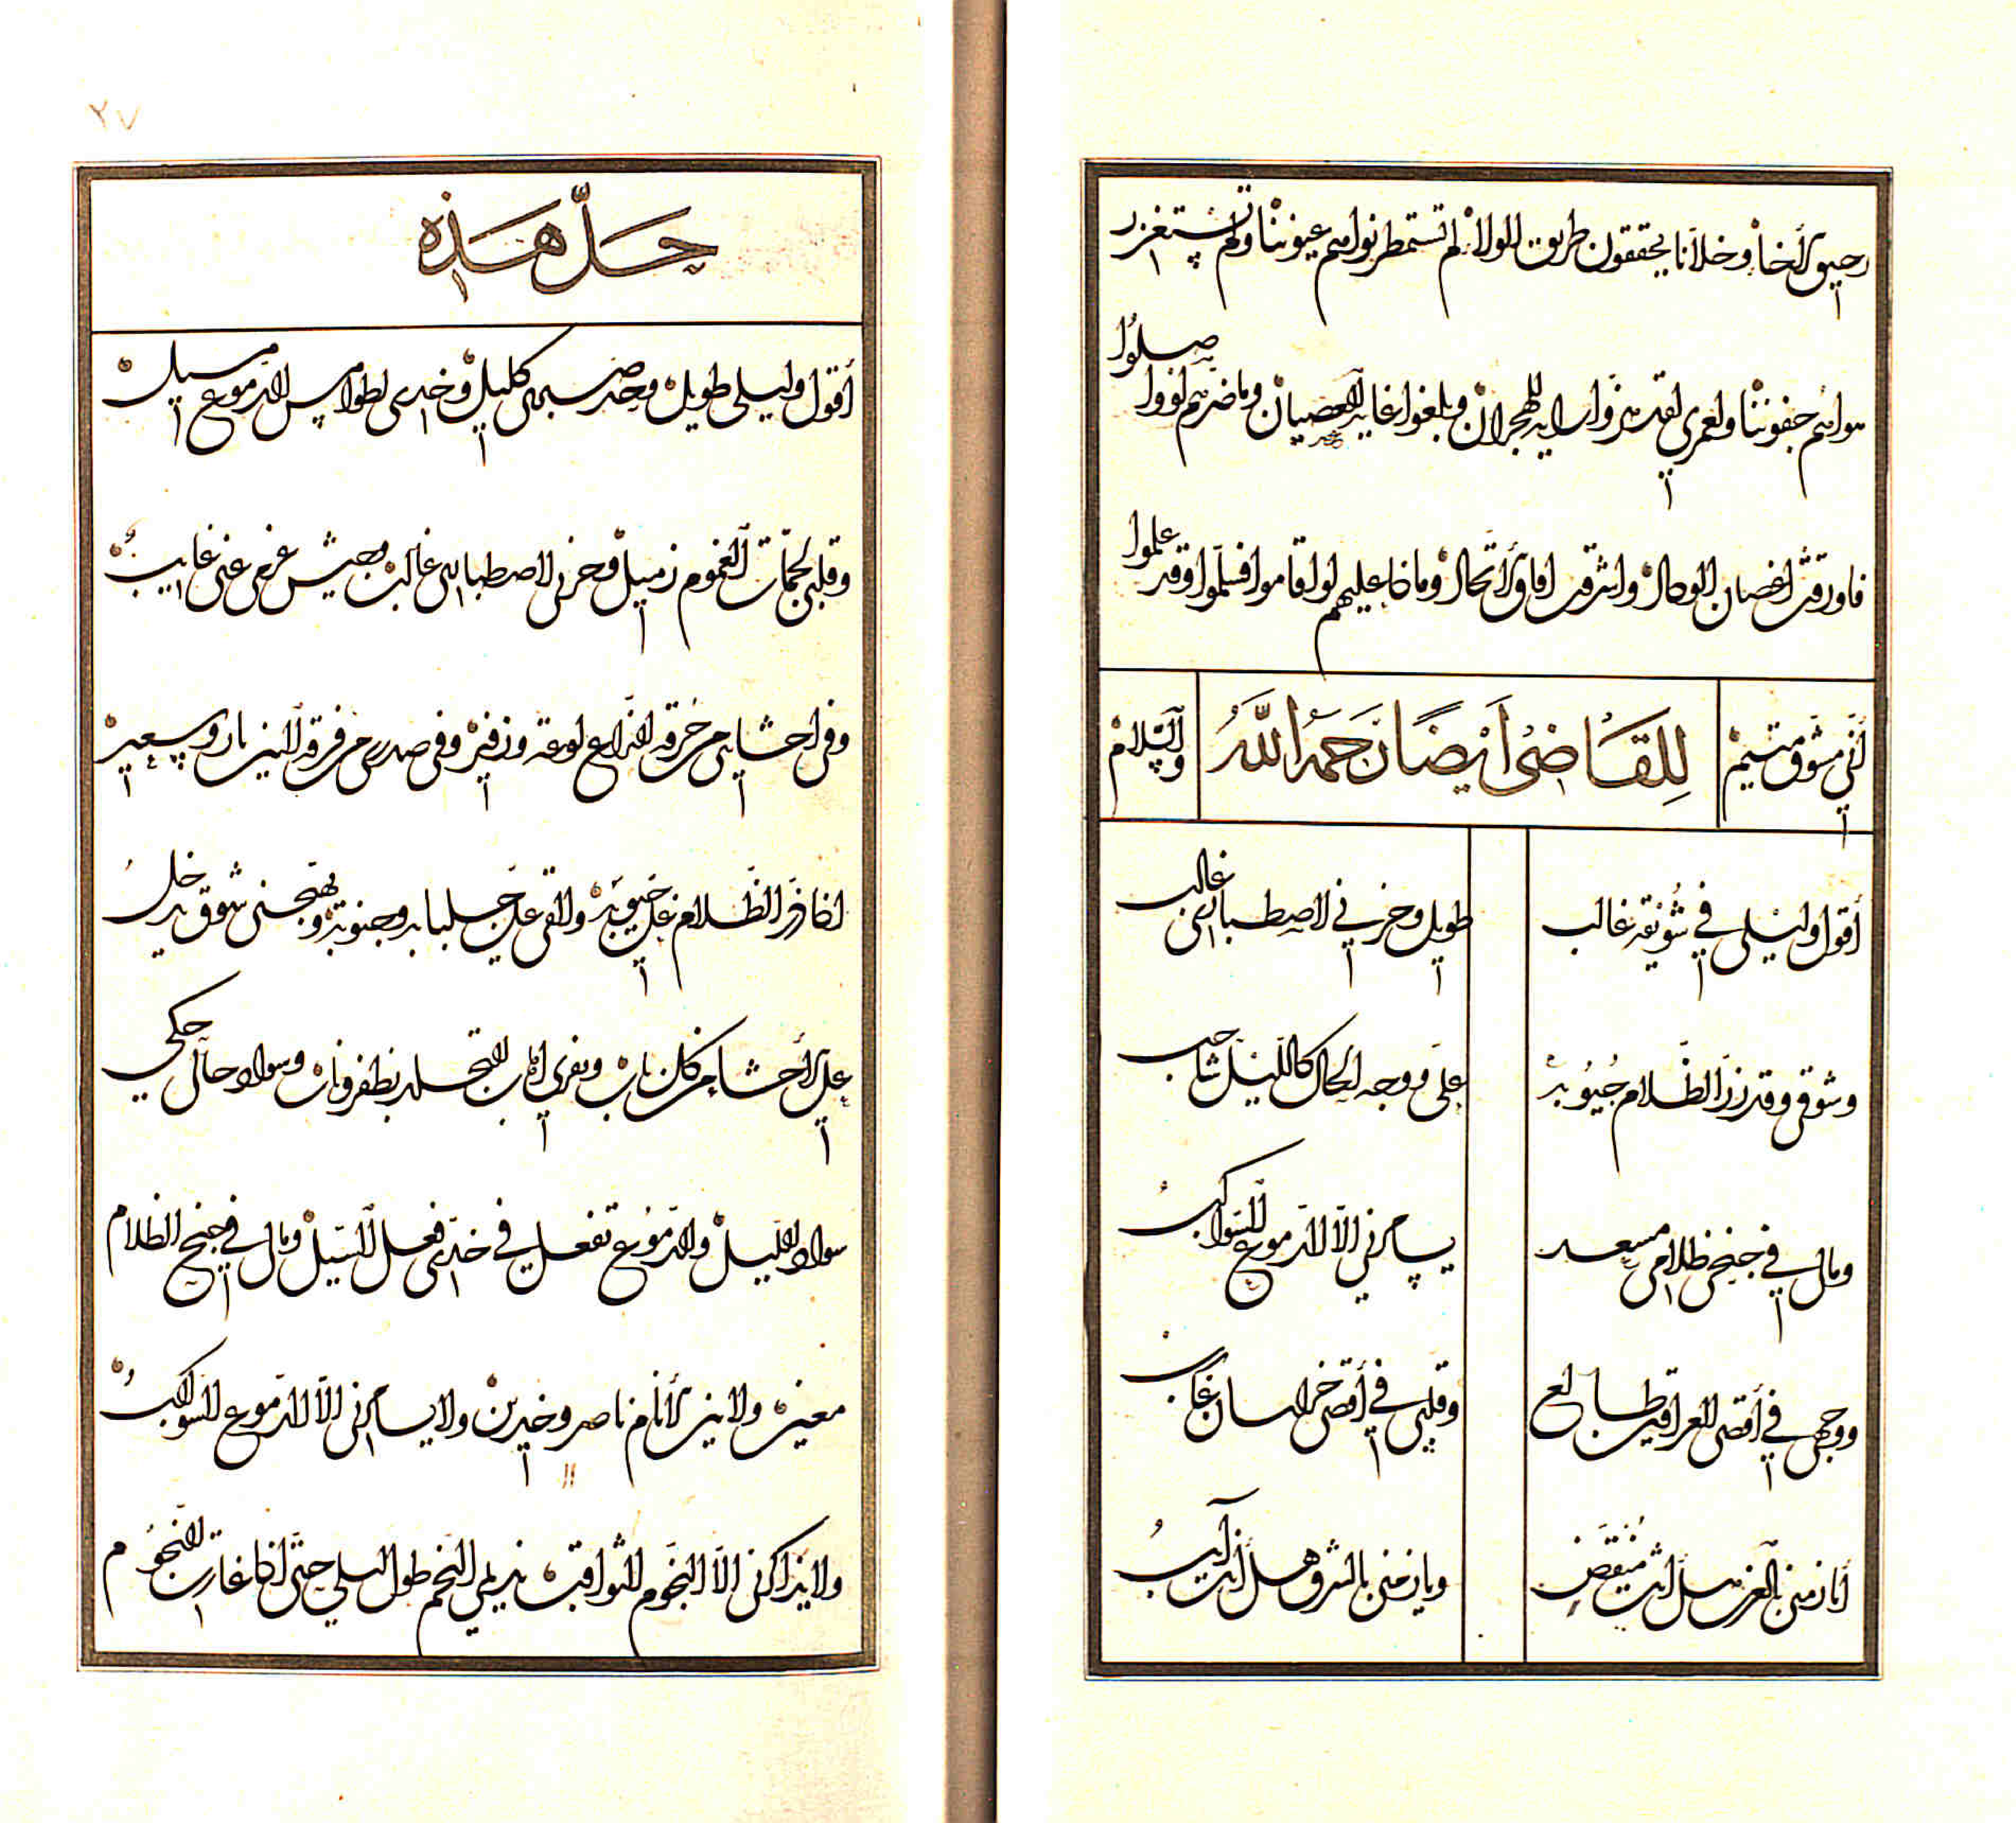 رحيق الإخاء وخلانا يحققون طريق الولاء لم تستمطر نواسم عيوننا ولم تستغزر
سواسم جفوننا ولعمري لقد هزوا راية الهجران وبلغوا غاية العصيان وما ضرهم لو وصلوا
فاورقت اغصان الوصال واشرقت افاق الحال وما ذا عليهم لو اقاموا فسلموا وقد علموا
أنني مشوق متيم
للقاضي ايضا رحمه الله
والسلام
أقول وليلي في شونقة غالب
طويل وحزني لاصطباري غالب
وشوقي وقد زر الظلام جيوبه
علي ووجه الحال كالليل شاحب
ومالي في جنح ظلامي مسعد
يسامرني الا الدموع السواكب
ووجهي في أقصى العراقين طالع
وقلبي في أقصى خراسان غارب
أيا زمني بالغرب هل أنت منقض
ويا زمني بالشرق هل أنت آيب
٢٧
حل هذه
أقول وليلي طويل وحد صبري كليل وخدي لطوامس الدموع مسيل
وقلبي لجمات الغموم زميل وحزني لاصطباري غالب وجيش عزمي عني غايب
وفي احشاي من حرقة النزاع لوعة وزفير وفي صدري من فرقة النيران وسعير
اذا زر الظلام علي جيوبه والقى علي جلبابه وجنوبه وتهيجني شوق يدخل
على الأحشاء من كل باب ويفري اهاب التجلد بظفر وناب وسواد حالي حكي
سواد الليل والدموع تفعل في خدي فعل السيل ومالي في جنح الظلام
معين ولا من الأنام ناصر وخدين ولا يسامرني الا الدموع السواكب
ولا يذاكرني الا النجوم الثواقب نديمي النجم طول الليل حتى اذا غارت النجوم